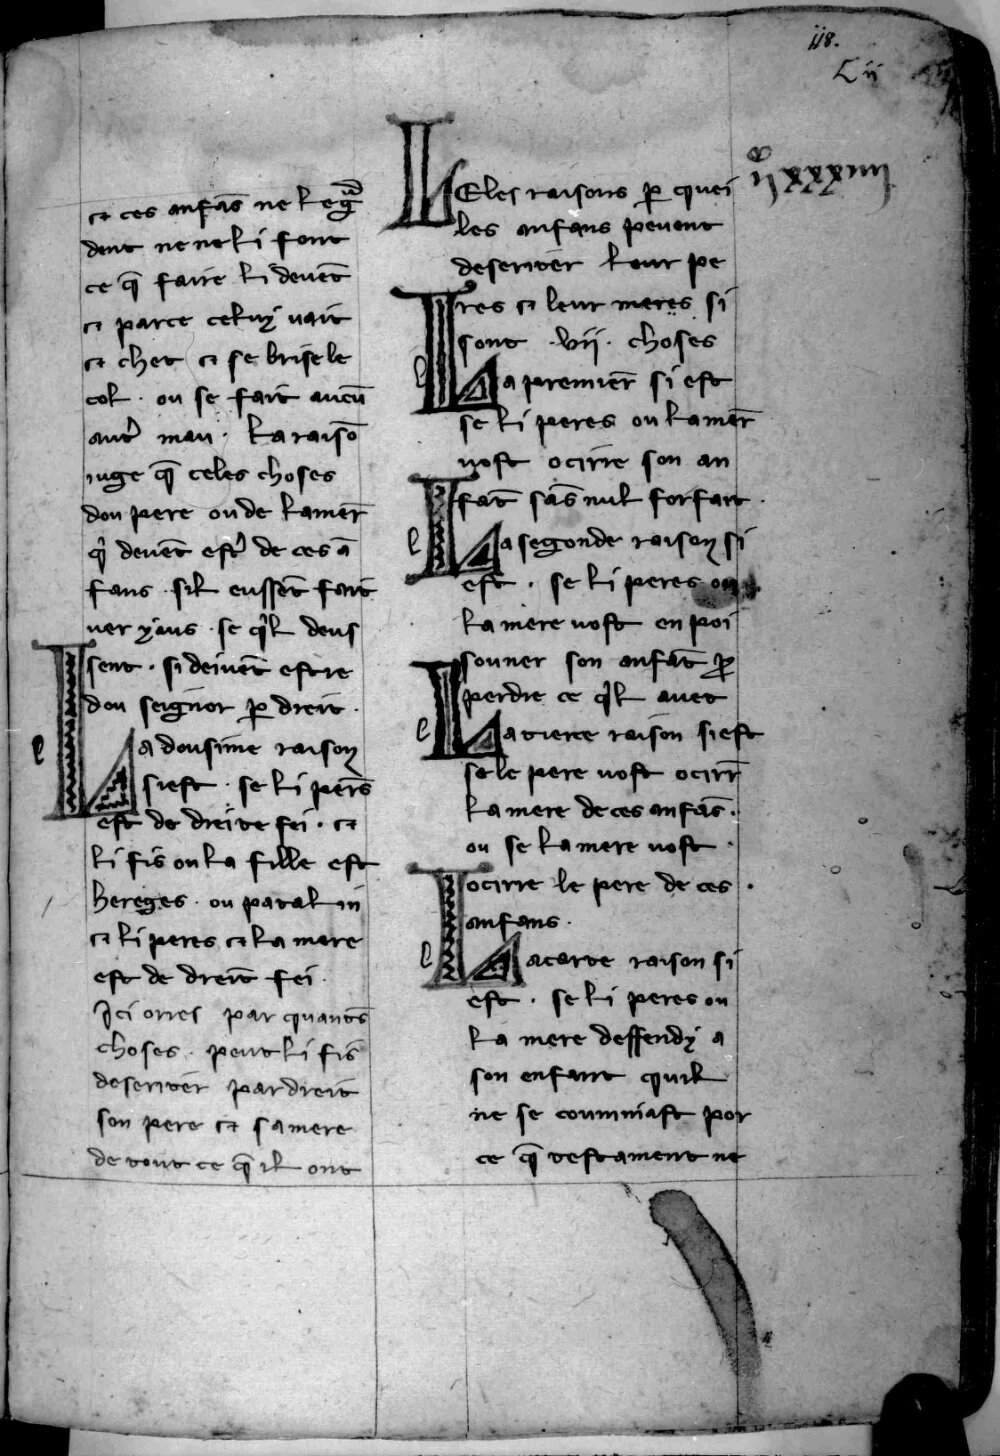 118.
Lii
et ces anfãs ne le gard
dent ne ne li font
ce q̃ faire li deuẽt
et parce celuy uait
et chet et se brise le
col · ou se fait aucũ
autr̃ mau · La raisõ
iuge q̃ celes choses
dou pere ou de la mer̃
q̃ deuẽt estr̃ de ces ã
fans · sil eussẽt fait
uer yaus · se q̃l deus
sent · si deiuẽt estre
dou seignor ꝑ dreit ·
l
La dousime raison
si est · se li pers̃
est de dreite fei · et
li fis ou la fille est
hereges · ou patalin
et li peres et la mere
est de dreit̃ fei ·
Ici orres par quants̃
choses · peut li fis
deseriter par dreit
son pere et sa mere
de tout ce q̃ il ont
LEles raisons ꝑ quei
les anfans peuent
deseriter lour pe
res et leur meres si
sont · vii · choses
l
La premier̃ si est
se li peres ou la mer̃
uost ocirre son an
fãt sãs nul forfait ·
l
La segonde raison si
est · se li peres ou
la mere uost enpoi
souner son anfãt ꝑ
perdre ce q̃l auet
l
La tierce raison si est
se le pere uost ocirr̃
la mere de ces anfãs ·
ou se la mere uost ·
ocirre le pere de ces ·
anfans ·
l
La carte raison si
est · se li peres ou
la mere deffendy a
son enfant quil
ne se coumniast por
ce q̃ testament ne